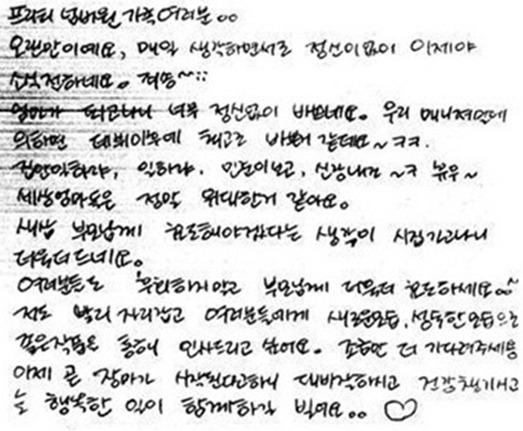 프리티 넘버원 가족여러분。。
오랜만이예요, 매일 생각하면서도 정신이없어 이제야
소식전하네요。 죄송~;;
엄마가 되고나니 너무 정신없이 바쁘네요。 우리 매니져언니에
의하면 데뷔이후에 최고로 바쁜거 같데요~ㅋㅋ.
집안일하랴, 일하랴. 민준이보고, 신랑내조~ㅋ 휴우~
세상엄마들은 정말 위대한거 같아요。
새삼 부모님께 효도해야겠다는 생각이 시집가고나니
더욱더 드네요。
여러분들도 후회하지말고 부모님께 더욱더 효도하세요。。~
저도 빨리 자리잡고 여러분들에게 새로운모습, 성숙한모습으로
좋은작품을 통해 인사드리고 싶어요。 조금만 더 기다려주세용
이제 곧 장마가 시작된다고하니 대비잘하시고 건강챙기시고
늘 행복한 일이 함께하길 빌어요。。 ♡